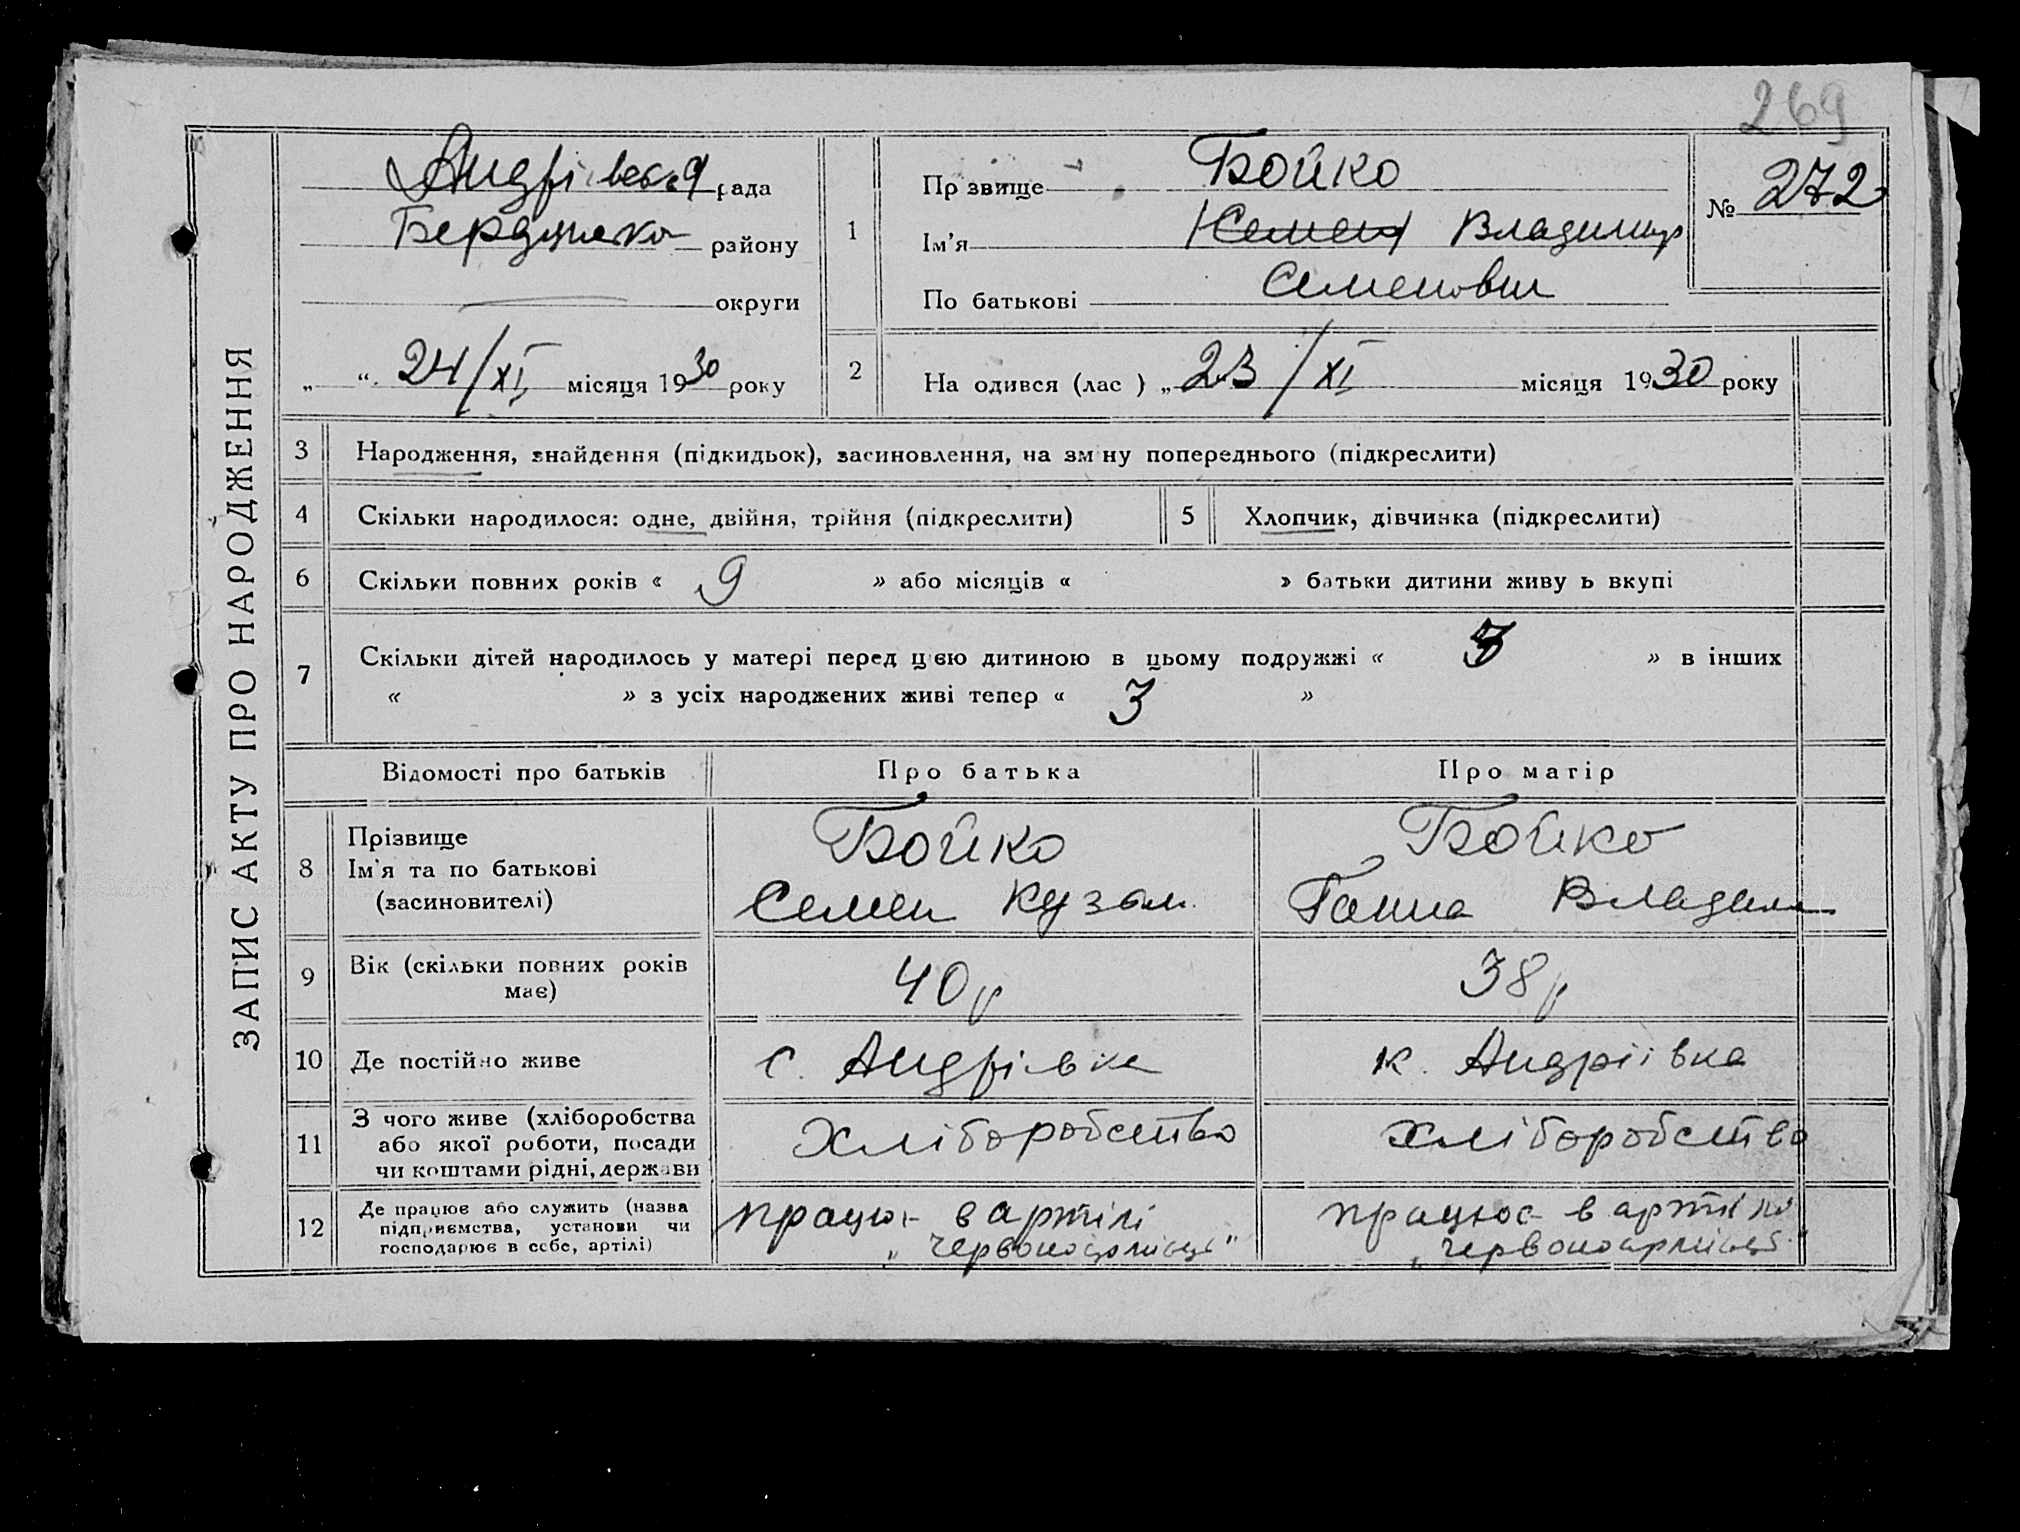 269
ЗАПИС АКТУ ПРО НАРОДЖЕННЯ
Андрівська рада
Бердянсько району
округи
„ “ 24/XI місяця 1930 року
1
Пр звище Бойко
Ім'я Семен Владимир
По батькові Семенович
№ 272
2 На одився (лас ) „ 23/XI місяця 1930 року
3 Народження, знайдення (підкидьок), засиновлення, на зм ну попереднього (підкреслити)
4 Скільки народилося: одне, двійня, трійня (підкреслити) 5 Хлопчик, дівчинка (підкреслити)
6 Скільки повних років « 9 » або місяців « » батьки дитини живу ь вкупі
7 Скільки дітей народилось у матері перед цією дитиною в цьому подружжі « » в інших
« » з усіх народжених живі тепер « 3 »
Відомості про батьків Про батька Про матір
8 Прізвище
Ім'я та по батькові
(засиновителі)
Бойко
Семен Кузьм.
Бойко
Ганна Владим
9 Вік (скільки повних років
має)
40 р
38 р
10 Де постійно живе с. Андрівка к. Андріївка
11 З чого живе (хліборобства
або якої роботи, посади
чи коштами рідні, держави
Хліборобство
хліборобство
12 Де працює або служить (назва
підприємства, установи чи
господарює в себе, артілі)
працює в артілі
„Червоноармієць"
працює в артілі
„Червоноармієць"